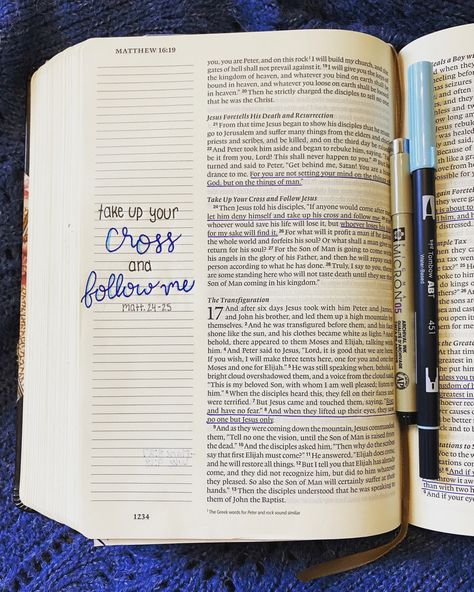 MATTHEW 16:19
take up your
cross
and
follow me
matt. 24-25
1234
you, you are Peter, and on this rock¹ I will build my church, and the
gates of hell shall not prevail against it. 19 I will give you the keys of
the kingdom of heaven, and whatever you bind on earth shall be
bound in heaven, and whatever you loose on earth shall be loosed
in heaven." 20 Then he strictly charged the disciples to tell no one
that he was the Christ.
Jesus Foretells His Death and Resurrection
21 From that time Jesus began to show his disciples that he must
go to Jerusalem and suffer many things from the elders and chief
priests and scribes, and be killed, and on the third day be raised.
22 And Peter took him aside and began to rebuke him, saying, "Far
be it from you, Lord! This shall never happen to you." 23 But he
turned and said to Peter, "Get behind me, Satan! You are a hindrance
to me. For you are not setting your mind on the things of
God, but on the things of man."
Take Up Your Cross and Follow Jesus
24 Then Jesus told his disciples, "If anyone would come after me,
let him deny himself and take up his cross and follow me.
whoever would save his life will lose it, but whoever loses his life
for my sake will find it. 26 For what will it profit a man if he gains
the whole world and forfeits his soul? Or what shall a man give in
return for his soul? 27 For the Son of Man is going to come with
his angels in the glory of his Father, and then he will repay each
person according to what he has done. 28 Truly, I say to you, there
are some standing here who will not taste death until they see the
Son of Man coming in his kingdom."
The Transfiguration
17 And after six days Jesus took with him Peter and James,
and John his brother, and led them up a high mountain by
themselves. 2 And he was transfigured before them, and his face
shone like the sun, and his clothes became white as light. 3 And
behold, there appeared to them Moses and Elijah, talking with
him. 4 And Peter said to Jesus, "Lord, it is good that we are here.
If you wish, I will make three tents here, one for you and one for
Moses and one for Elijah." 5 He was still speaking when, behold, a
bright cloud overshadowed them, and a voice from the cloud said,
"This is my beloved Son, with whom I am well pleased; listen to
him." 6 When the disciples heard this, they fell on their faces and
were terrified. 7 But Jesus came and touched them, saying, "Rise,
and have no fear." 8 And when they lifted up their eyes, they saw
no one but Jesus only.
9 And as they were coming down the mountain, Jesus commanded
them, "Tell no one the vision, until the Son of Man is raised from
the dead." 10 And the disciples asked him, "Then why do the scribes
say that first Elijah must come?" 11 He answered, "Elijah does come,
and he will restore all things. 12 But I tell you that Elijah has already
come, and they did not recognize him, but did to him whatever
they pleased. So also the Son of Man will certainly suffer at their
hands." 13 Then the disciples understood that he was speaking to
them of John the Baptist.
¹ The Greek words for Peter and rock sound similar
MICRON 05
Tombow ABT
451
Heals a Boy w